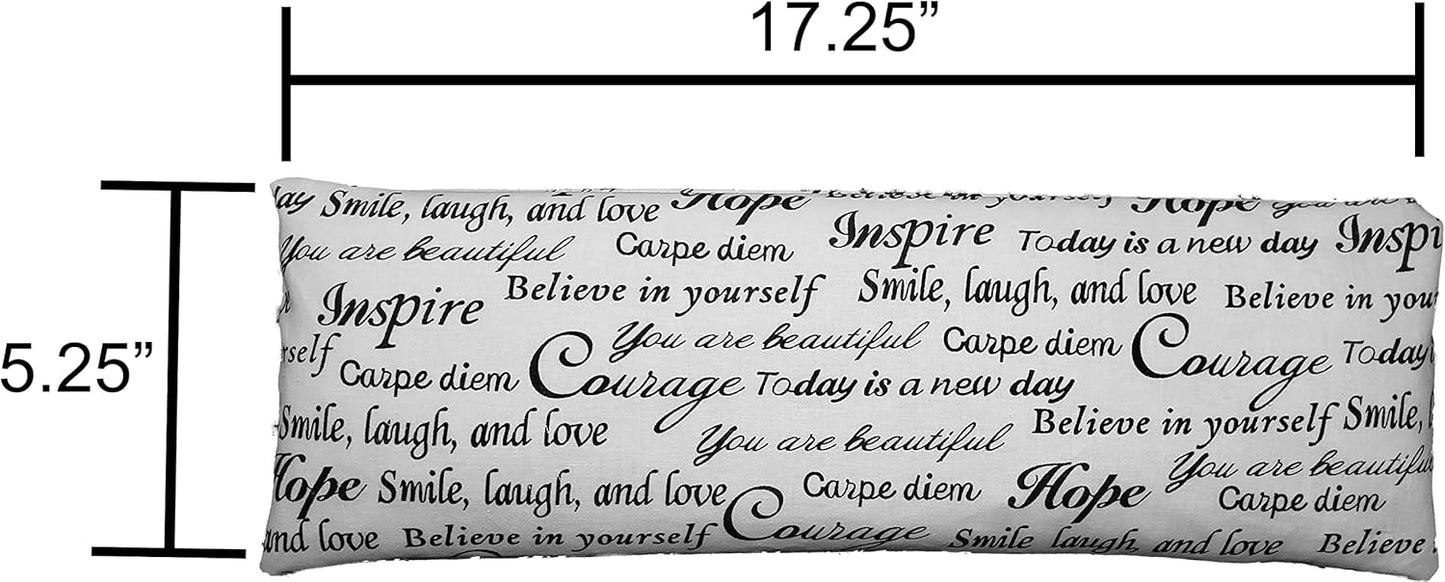 17.25”
5.25”
day Smile, laugh, and love Hope Believe in yourself Hope You are
You are beautiful Carpe diem Inspire Today is a new day Inspi
Inspire Believe in yourself Smile, laugh, and love Believe in you
rself Carpe diem Courage You are beautiful Carpe diem Courage Today
Today is a new day
Smile, laugh, and love You are beautiful Believe in yourself Smile,
Hope Smile, laugh, and love Carpe diem Hope You are beautiful
Carpe diem
and love Believe in yourself Courage Smile laugh, and love Believe